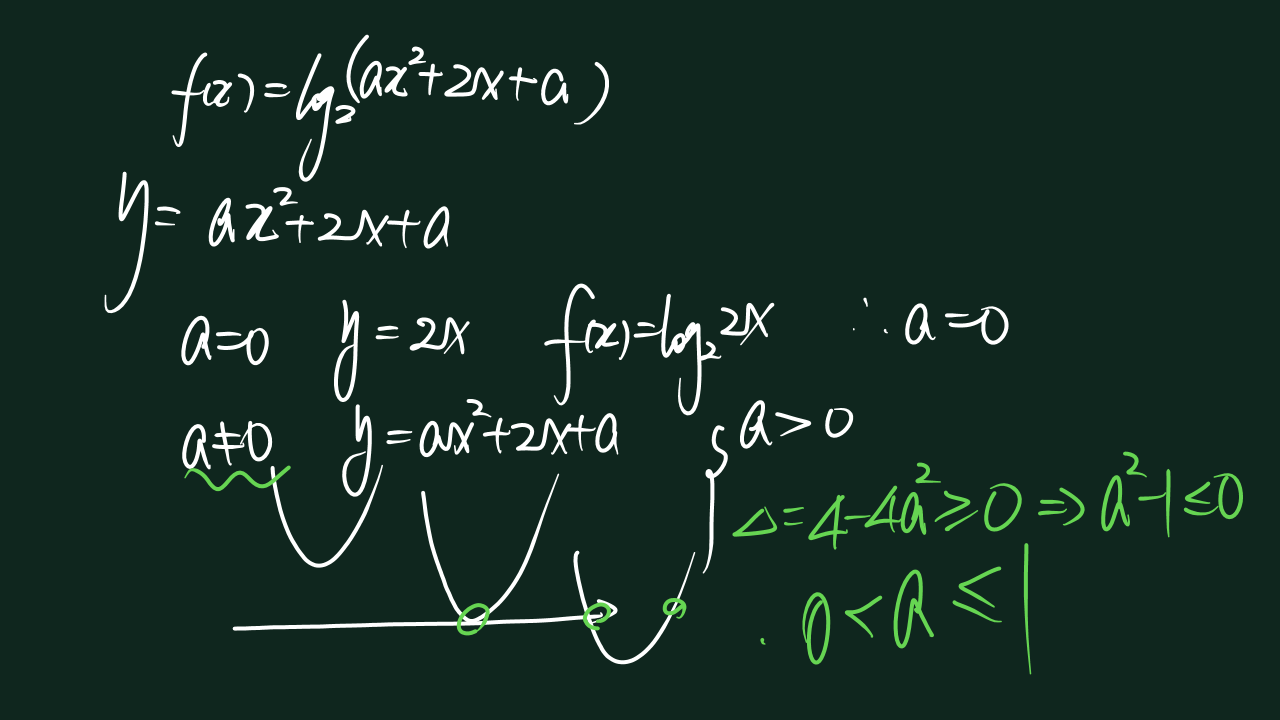 f(x)=log₂(ax²+2x+a)
y= ax²+2x+a
a=0 y=2x f(x)=log₂2x ∴a=0
a≠0 y=ax²+2x+a { a>0
Δ=4-4a²≥0 ⇒ a²-1≤0
0<a≤1